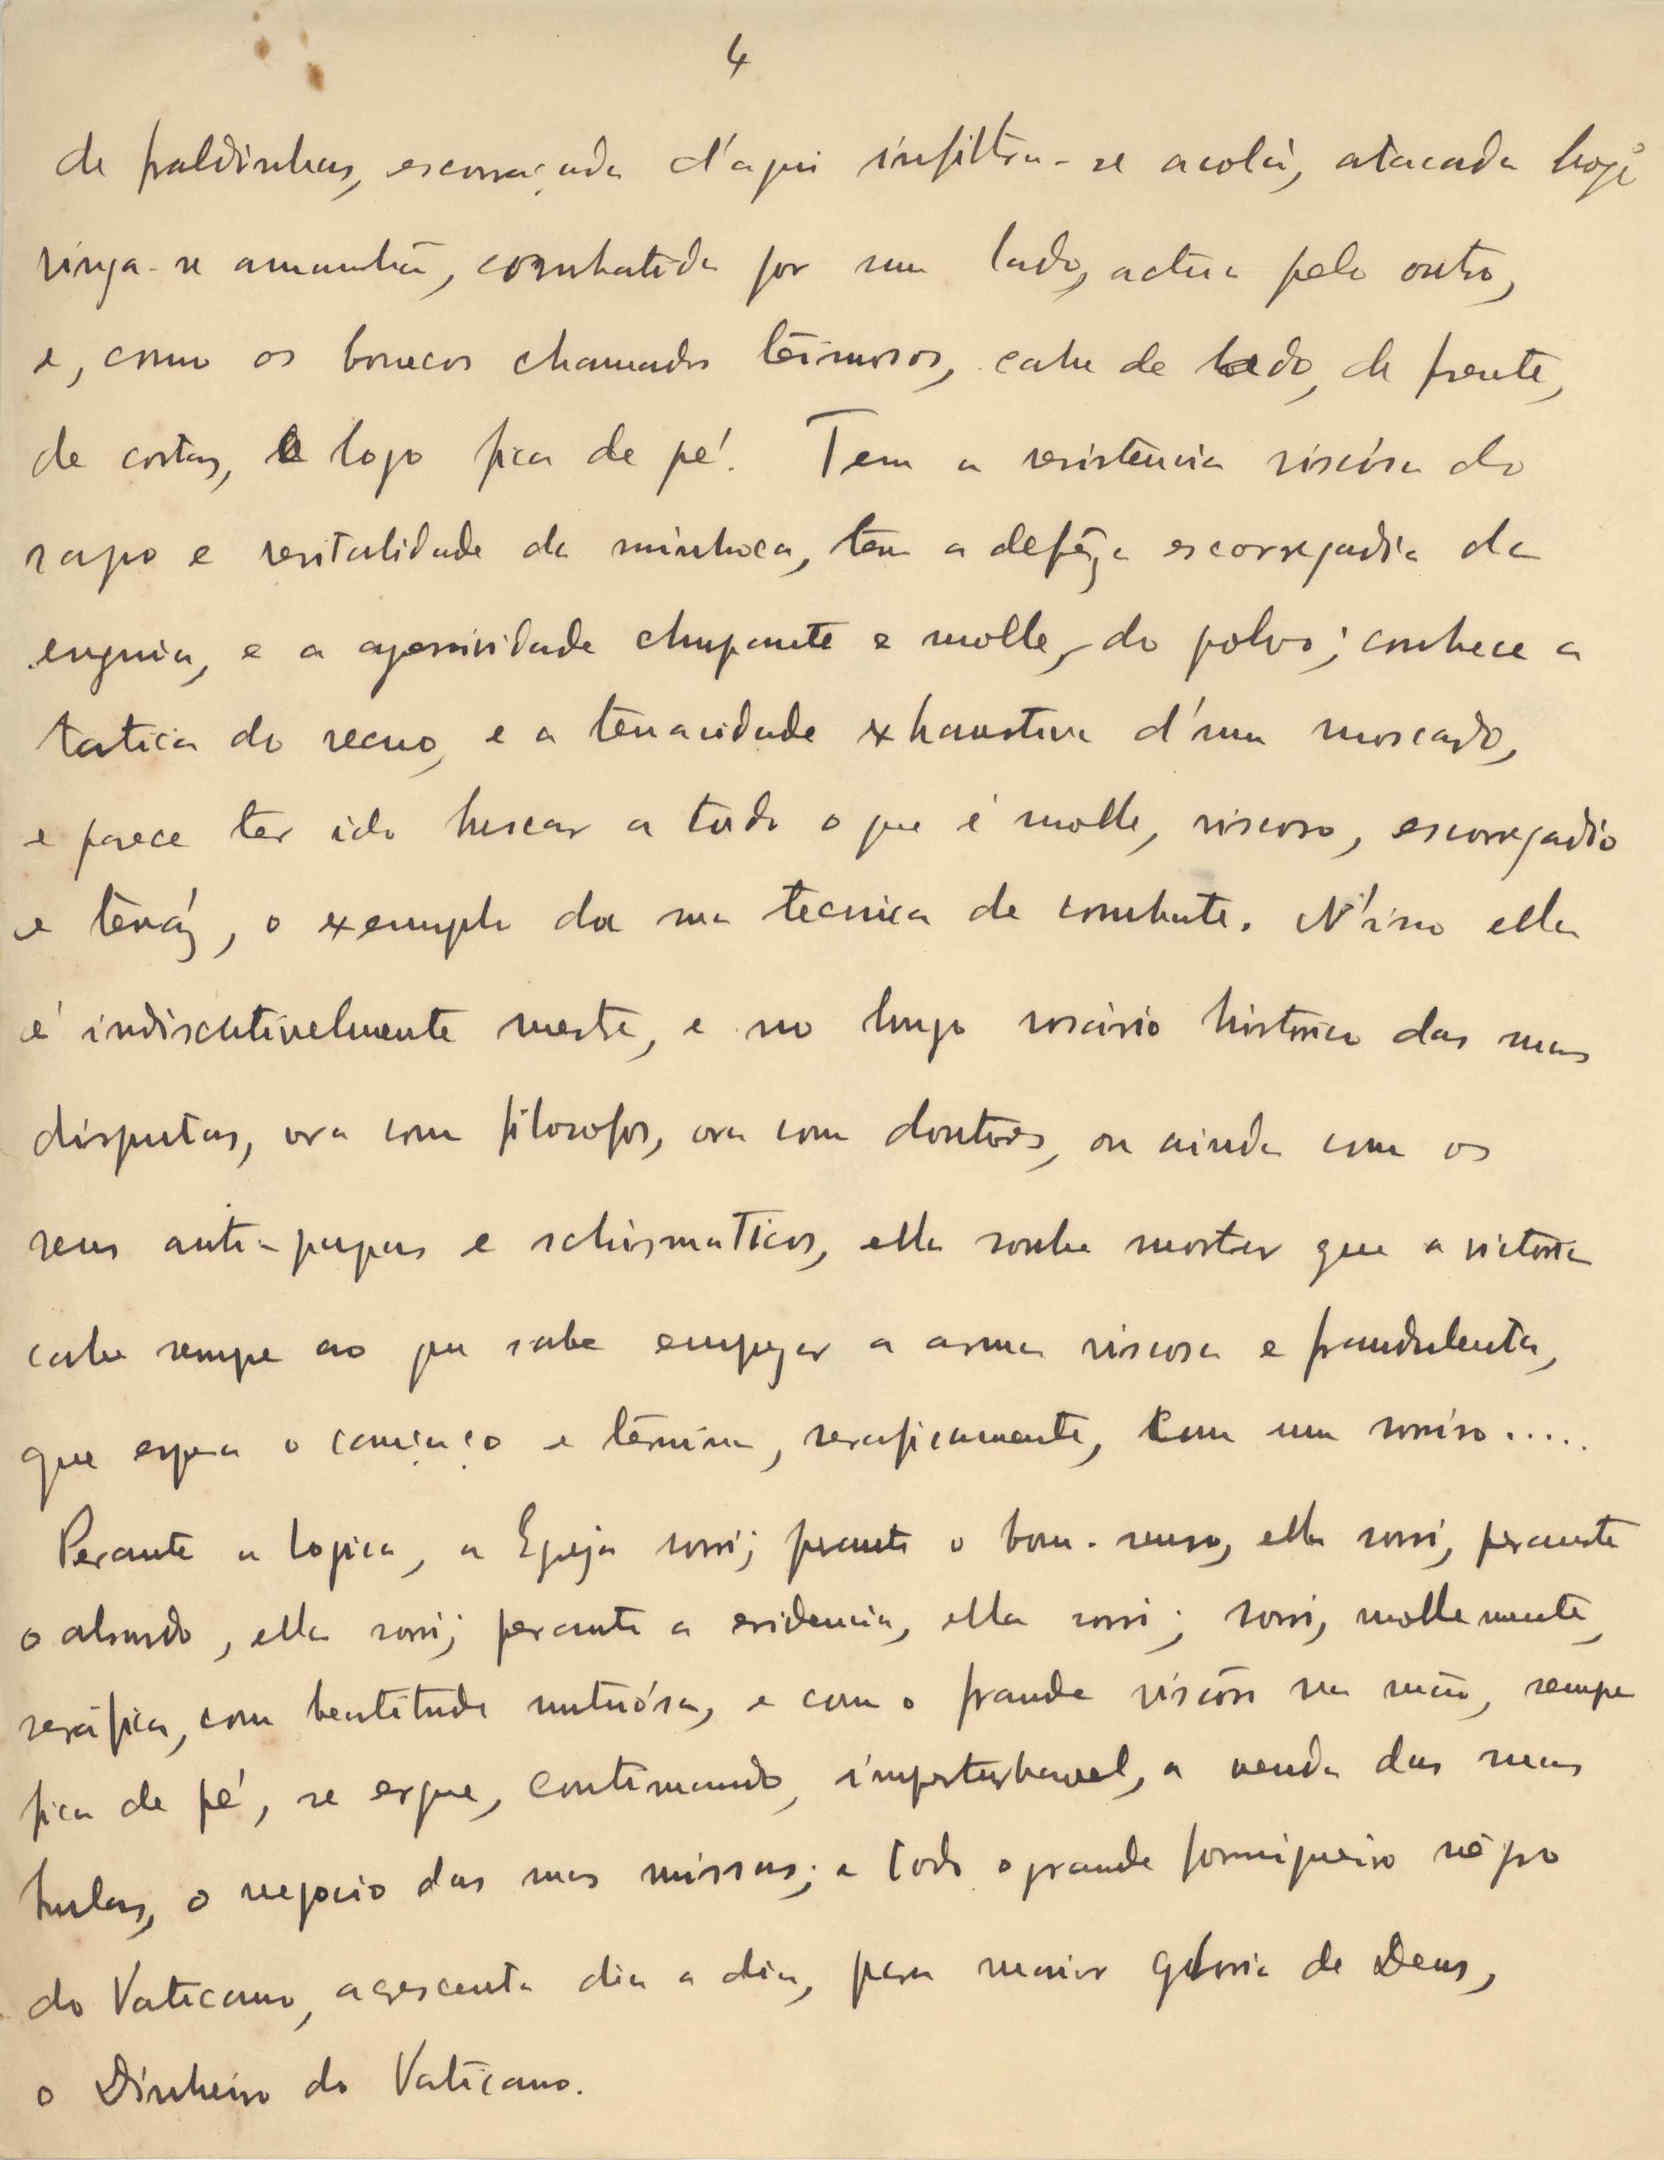 4
de fraldinhas, escorraçada d'aqui infiltra-se acolá, atacada hoje
vinga-se amanhã, combatida por um lado, actua pelo outro,
e, como os bonecos chamados teimosos, cahe de lado, de frente,
de costas, e logo fica de pé. Tem a resistencia viscósa do
sapo e a vitalidade da minhoca, tem a defêza escorregadia da
enguia, e a agressividade chupante e molle, do polvo; conhece a
tatica do recuo, e a tenacidade exhaustiva d'um moscardo,
e parece ter ido buscar a tudo o que é molle, viscoso, escorregadio
e tenáz, o exemplo da sua tecnica de combate. N'isso ella
é indiscutivelmente mestra, e no longo rosário historico das suas
disputas, ora com filosofos, ora com doutores, ou ainda com os
seus anti-papas e schismaticos, ella soube mostrar que a victoria
cabe sempre ao que sabe empregar a arma viscosa e fraudulenta,
que espera o cansaço e termina, seraficamente, com um sorriso.....
Perante a logica, a Egreja sorri; perante o bom-senso, ella sorri, perante
o absurdo, ella sorri; perante a evidencia, ella sorri; sorri, mollemente,
seráfica, com beatitude untuósa, e com a fraude viscósa na mão, sempre
fica de pé, se ergue, continuando, imperturbavel, a venda das suas
bulas, o negocio das suas missas; e todo o grande formigueiro négro
do Vaticano, acrescenta dia a dia, para maior gloria de Deus,
o Dinheiro do Vaticano.